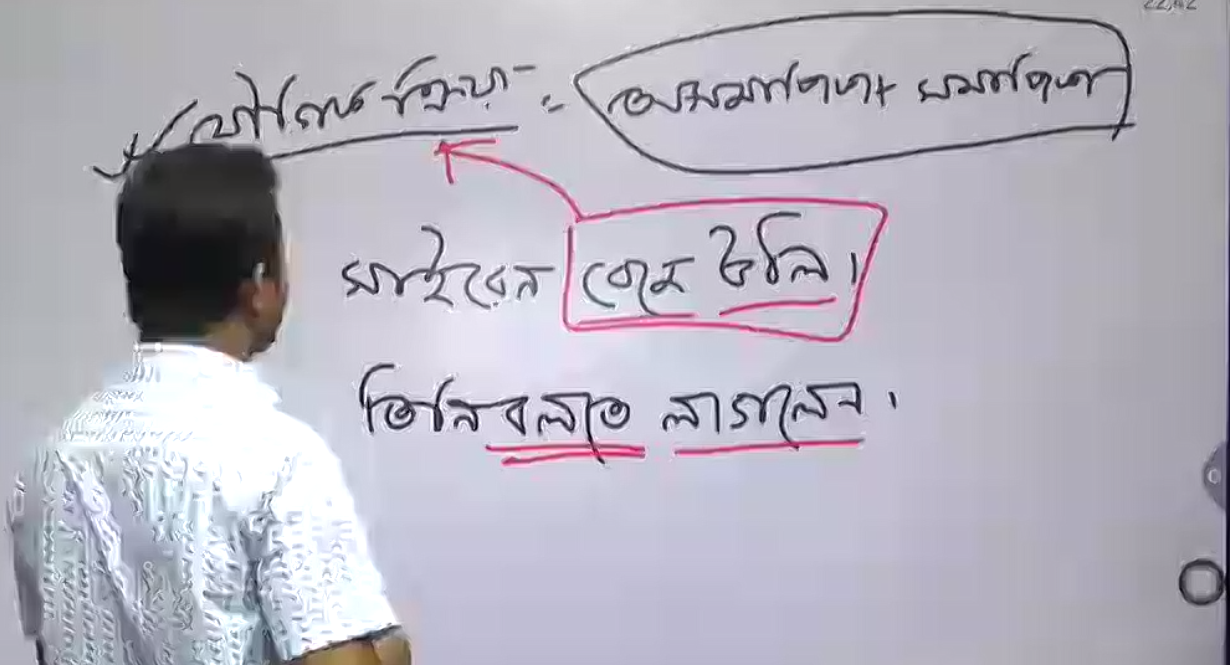 যৌগিক ক্রিয়া = অসমাপিকা + সমাপিকা
সাইরেন বেজে উঠল।
তিনি বলতে লাগলেন।